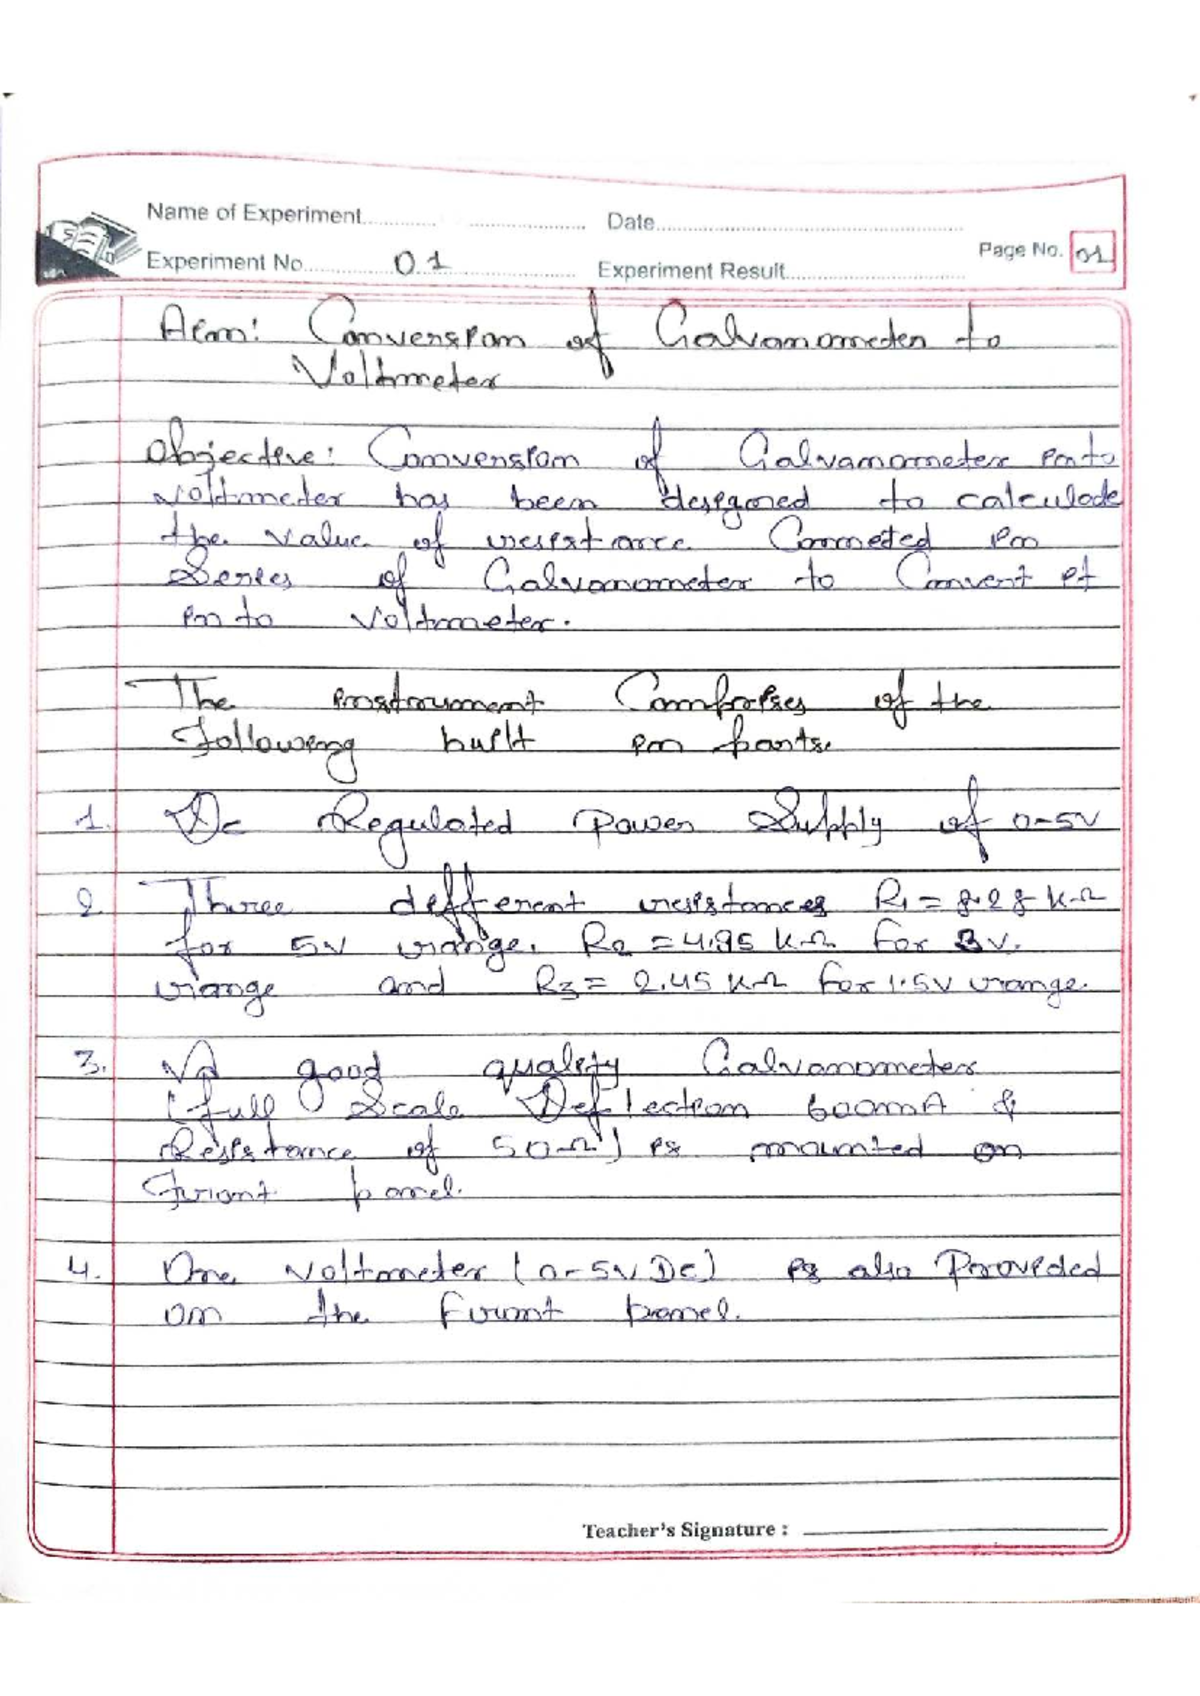 Name of Experiment.................................... Date....................................
Experiment No. 01 Experiment Result.................................... Page No. 01
Aim: Conversion of Galvanometer to
Voltmeter
Objective: Conversion of Galvanometer into
voltmeter has been designed to calculate
the value of resistance Connected in
Series of Galvanometer to Convert it
in to Voltmeter.
The instrument Comprises of the
Following built in parts.
1. Dc Regulated Power Supply of 0-5V
2. Three different resistances R1 = 8.28 kΩ
for 5V range. R2 = 4.95 kΩ for 3V.
range and R3 = 2.45 kΩ for 1.5V range.
3. A good quality Galvanometer
(full Scale Deflection 600mA &
Resistance of 50Ω) is mounted on
Front panel.
4. One Voltmeter (0-5V Dc) is also Provided
on the Front panel.
Teacher's Signature :